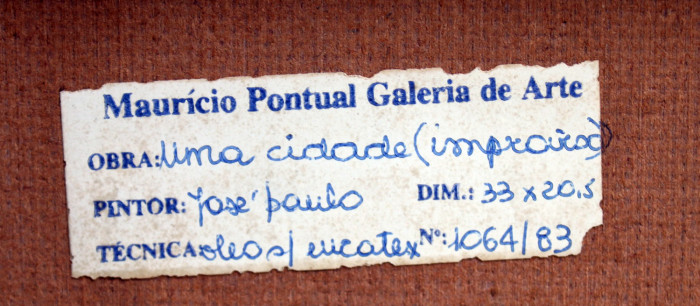 Maurício Pontual Galeria de Arte
OBRA: Uma cidade
PINTOR: José paulo DIM.: 33 x 20,5
TÉCNICA: oleo s/ eucatex Nº: 1064/83